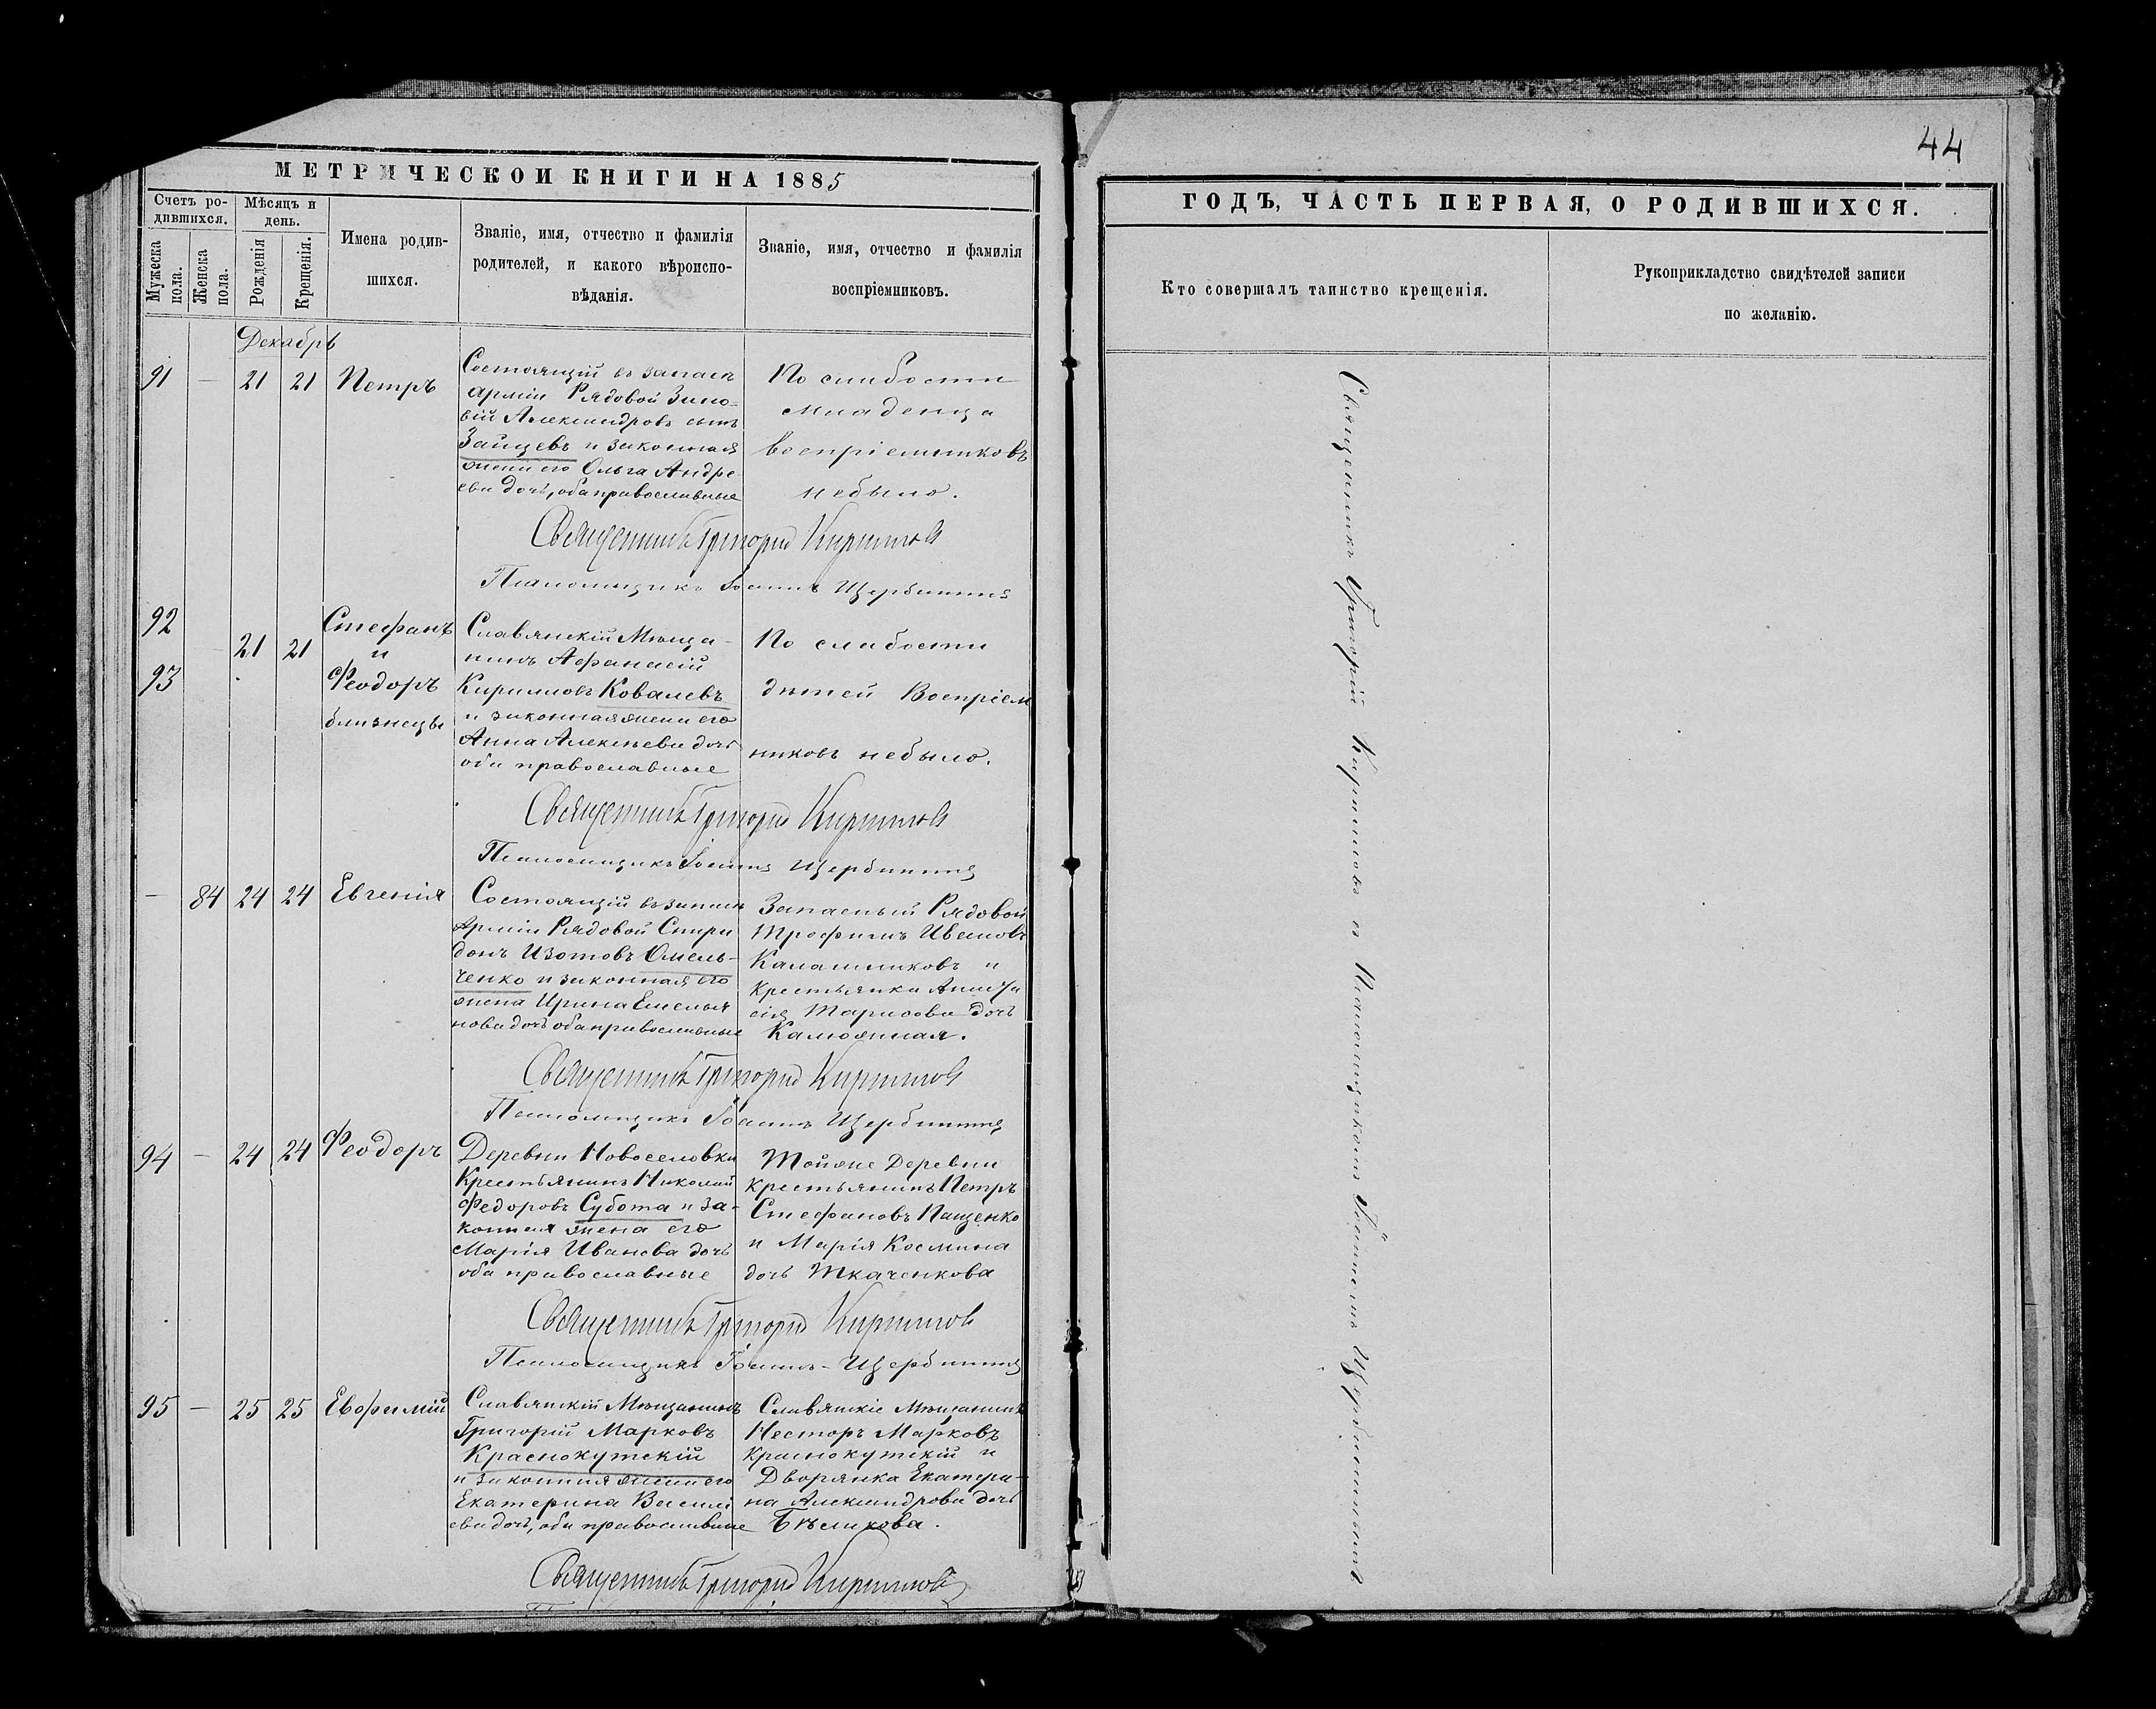 44
МЕТРИЧЕСКОЙ КНИГИ НА 1885
Счетъ ро-
дившихся.
Мѣсяцъ и
день.
Мужеска
пола.
Женска
пола.
Рожденія
Крещенія.
Имена родив-
шихся.
Званіе, имя, отчество и фамилія
родителей, и какого вѣроиспо-
вѣданія.
Званіе, имя, отчество и фамилія
воспріемниковъ.
Декабрь
91 — 21 21 Петръ
Состоящій въ запасѣ
арміи Рядовой Зино-
вій Александровъ сынъ
Зайцевъ и законная
жена его Ольга Андре-
ева дочь, оба православные
По слабости
младенца
воспріемниковъ
небыло.
Священникъ Григорій Кирилловъ
Псаломщикъ Іоаннъ Щербининъ
92
93
21 21
Стефанъ
и
Феодоръ
близнецы
Славянскій Мѣща-
нинъ Афанасій
Кирилловъ Ковалевъ
и законная жена его
Анна Алексѣева дочь
оба православные
По слабости
дѣтей Воспріем
никовъ небыло.
Священникъ Григорій Кирилловъ
Псаломщикъ Іоаннъ Щербининъ
— 84 24 24 Евгенія
Состоящій въ запасѣ
Арміи Рядовой Спири
донъ Изотовъ Омель-
ченко и законная его
жена Ирина Емелья
нова дочь оба православные
Запасный Рядовой
Трофимъ Ивановъ
Калашниковъ и
крестьянка
дочь
Священникъ Григорій Кирилловъ
Псаломщикъ Іоаннъ Щербининъ
94 — 24 24 Феодоръ
Деревни Новоселовки
Крестьянинъ Николай
Федоровъ Субота и за-
конная жена его
Марія Иванова дочь
оба православные
Тойже Деревни
крестьянинъ Петръ
Стефановъ Пащенко
и Марія Космина
дочь Ткаченкова
Священникъ Григорій Кирилловъ
Псаломщикъ Іоаннъ Щербининъ
95 — 25 25 Евфимій
Славянскій Мѣщанинъ
Григорій Марковъ
Краснокутскій
и законная жена его
Екатерина Василі
ева дочь, оба православные
Славянскіе Мѣщанинъ
Несторъ Марковъ
Краснокутскій и
Дворянка Екатери-
на Александрова дочь
Бѣликова.
Священникъ Григорій Кирилловъ
ГОДЪ, ЧАСТЬ ПЕРВАЯ, О РОДИВШИХСЯ.
Кто совершалъ таинство крещенія.
Рукоприкладство свидѣтелей записи
по желанію.
Священникъ Григорій Кирилловъ съ Псаломщикомъ Іоанномъ Щербининымъ